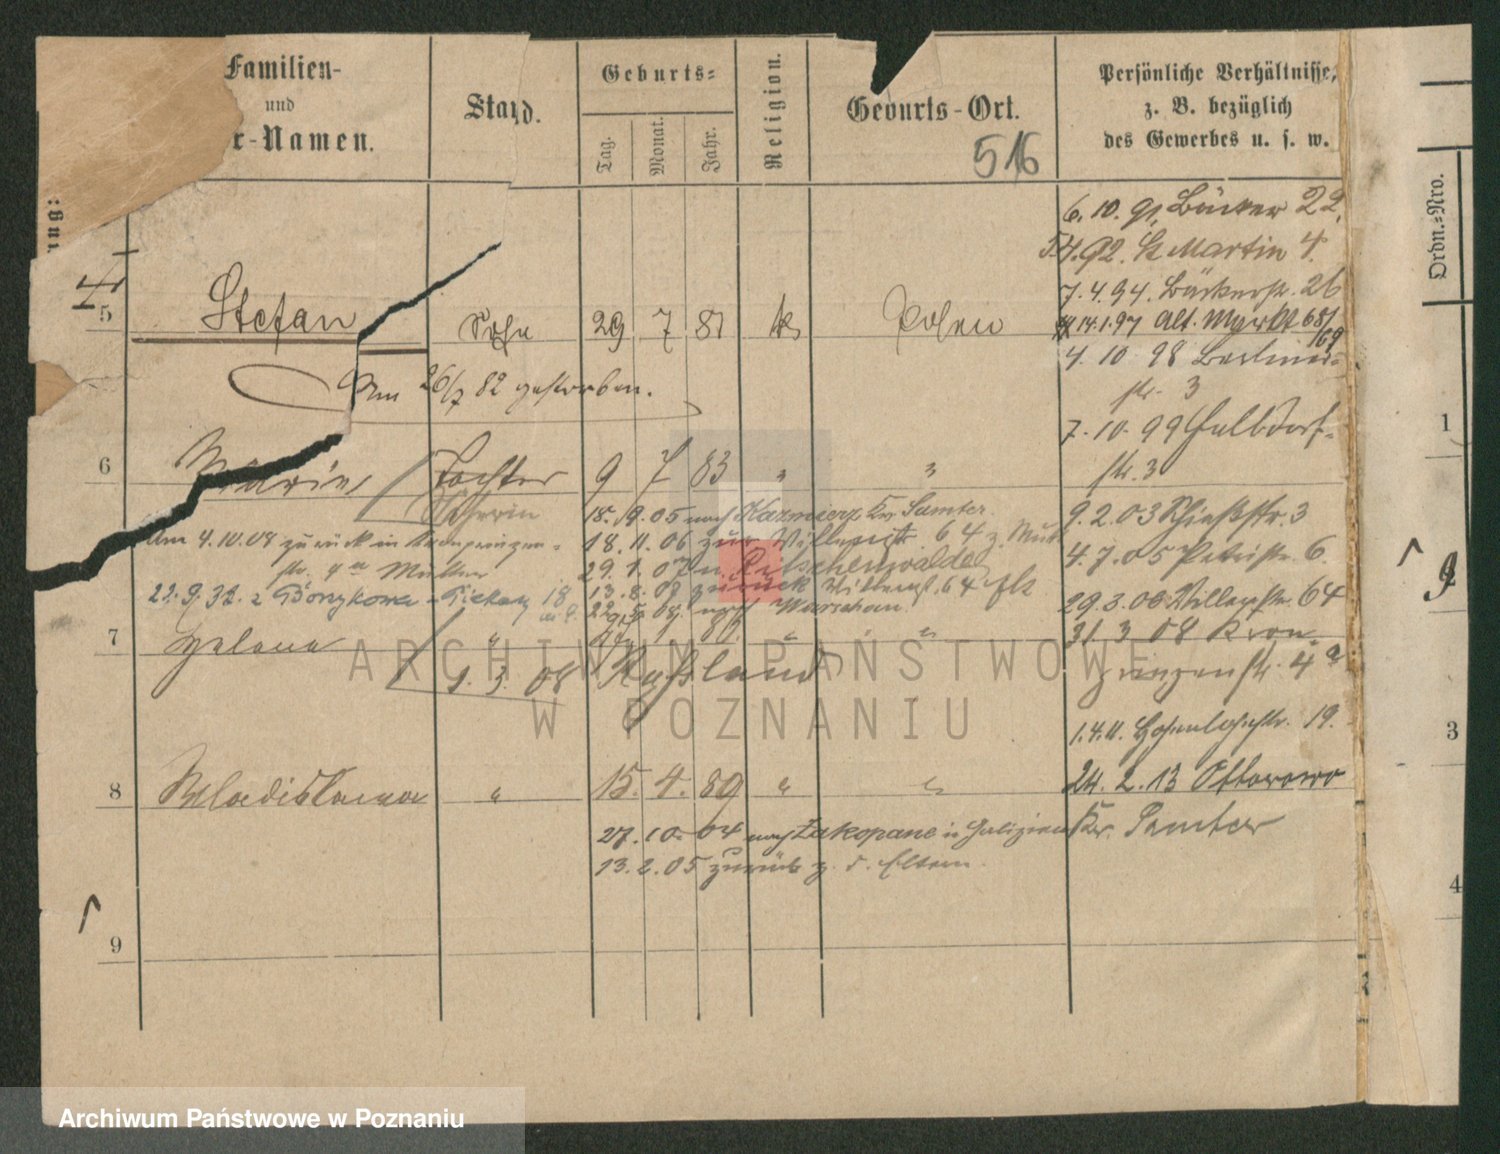 Familien-
und
r-Namen.
Stand.
Geburts-
Tag.
Monat.
Jahr.
Religion.
Geburts-Ort.
516
Persönliche Verhältnisse,
z. B. bezüglich
des Gewerbes u. s. w.
Ordn.-Nro.
6. 10. 91. 22.
5.4.92. St Martin 4.
7.4.94. Bäckerstr. 26
14.1.97 Alt. Markt 68/
69
4. 10 98 Berliner-
str. 3
7. 10. 99
str. 3
5 Stefan Sohn 29 7 81 k Posen
Am 26/7 82 gestorben.
6 Marie Tochter 9 7 83 " "
18. 9. 05 nach Kazmierz Kr. Samter.
9.2.03 3
Am 4.10.08 zurück in Kronprinzen-
18. 11. 06 zur 64 z. Mutt
4.7.05 Petristr. 6.
str. 4a Mutter
29. 1. 07 n. Ritschenwalde
22. 9. 32. z 18
13. 8. 07 zurück 64
29.3.06 64
22. 5. 08. nach Warschau.
7 Helena " " "
31. 3 08 Kron-
prinzenstr. 4a
1. 3. 08 Russland
1.4.11. 19.
8 Wladislawa " 15. 4. 89 " "
24. 2. 13 Ottorowo
Kr. Samter
27. 10. 04 nach Zakopane in Galizien
13. 2. 05 zurück z. d. Eltern.
9
1
3
4
ARCHIWUM PAŃSTWOWE
W POZNANIU
Archiwum Państwowe w Poznaniu